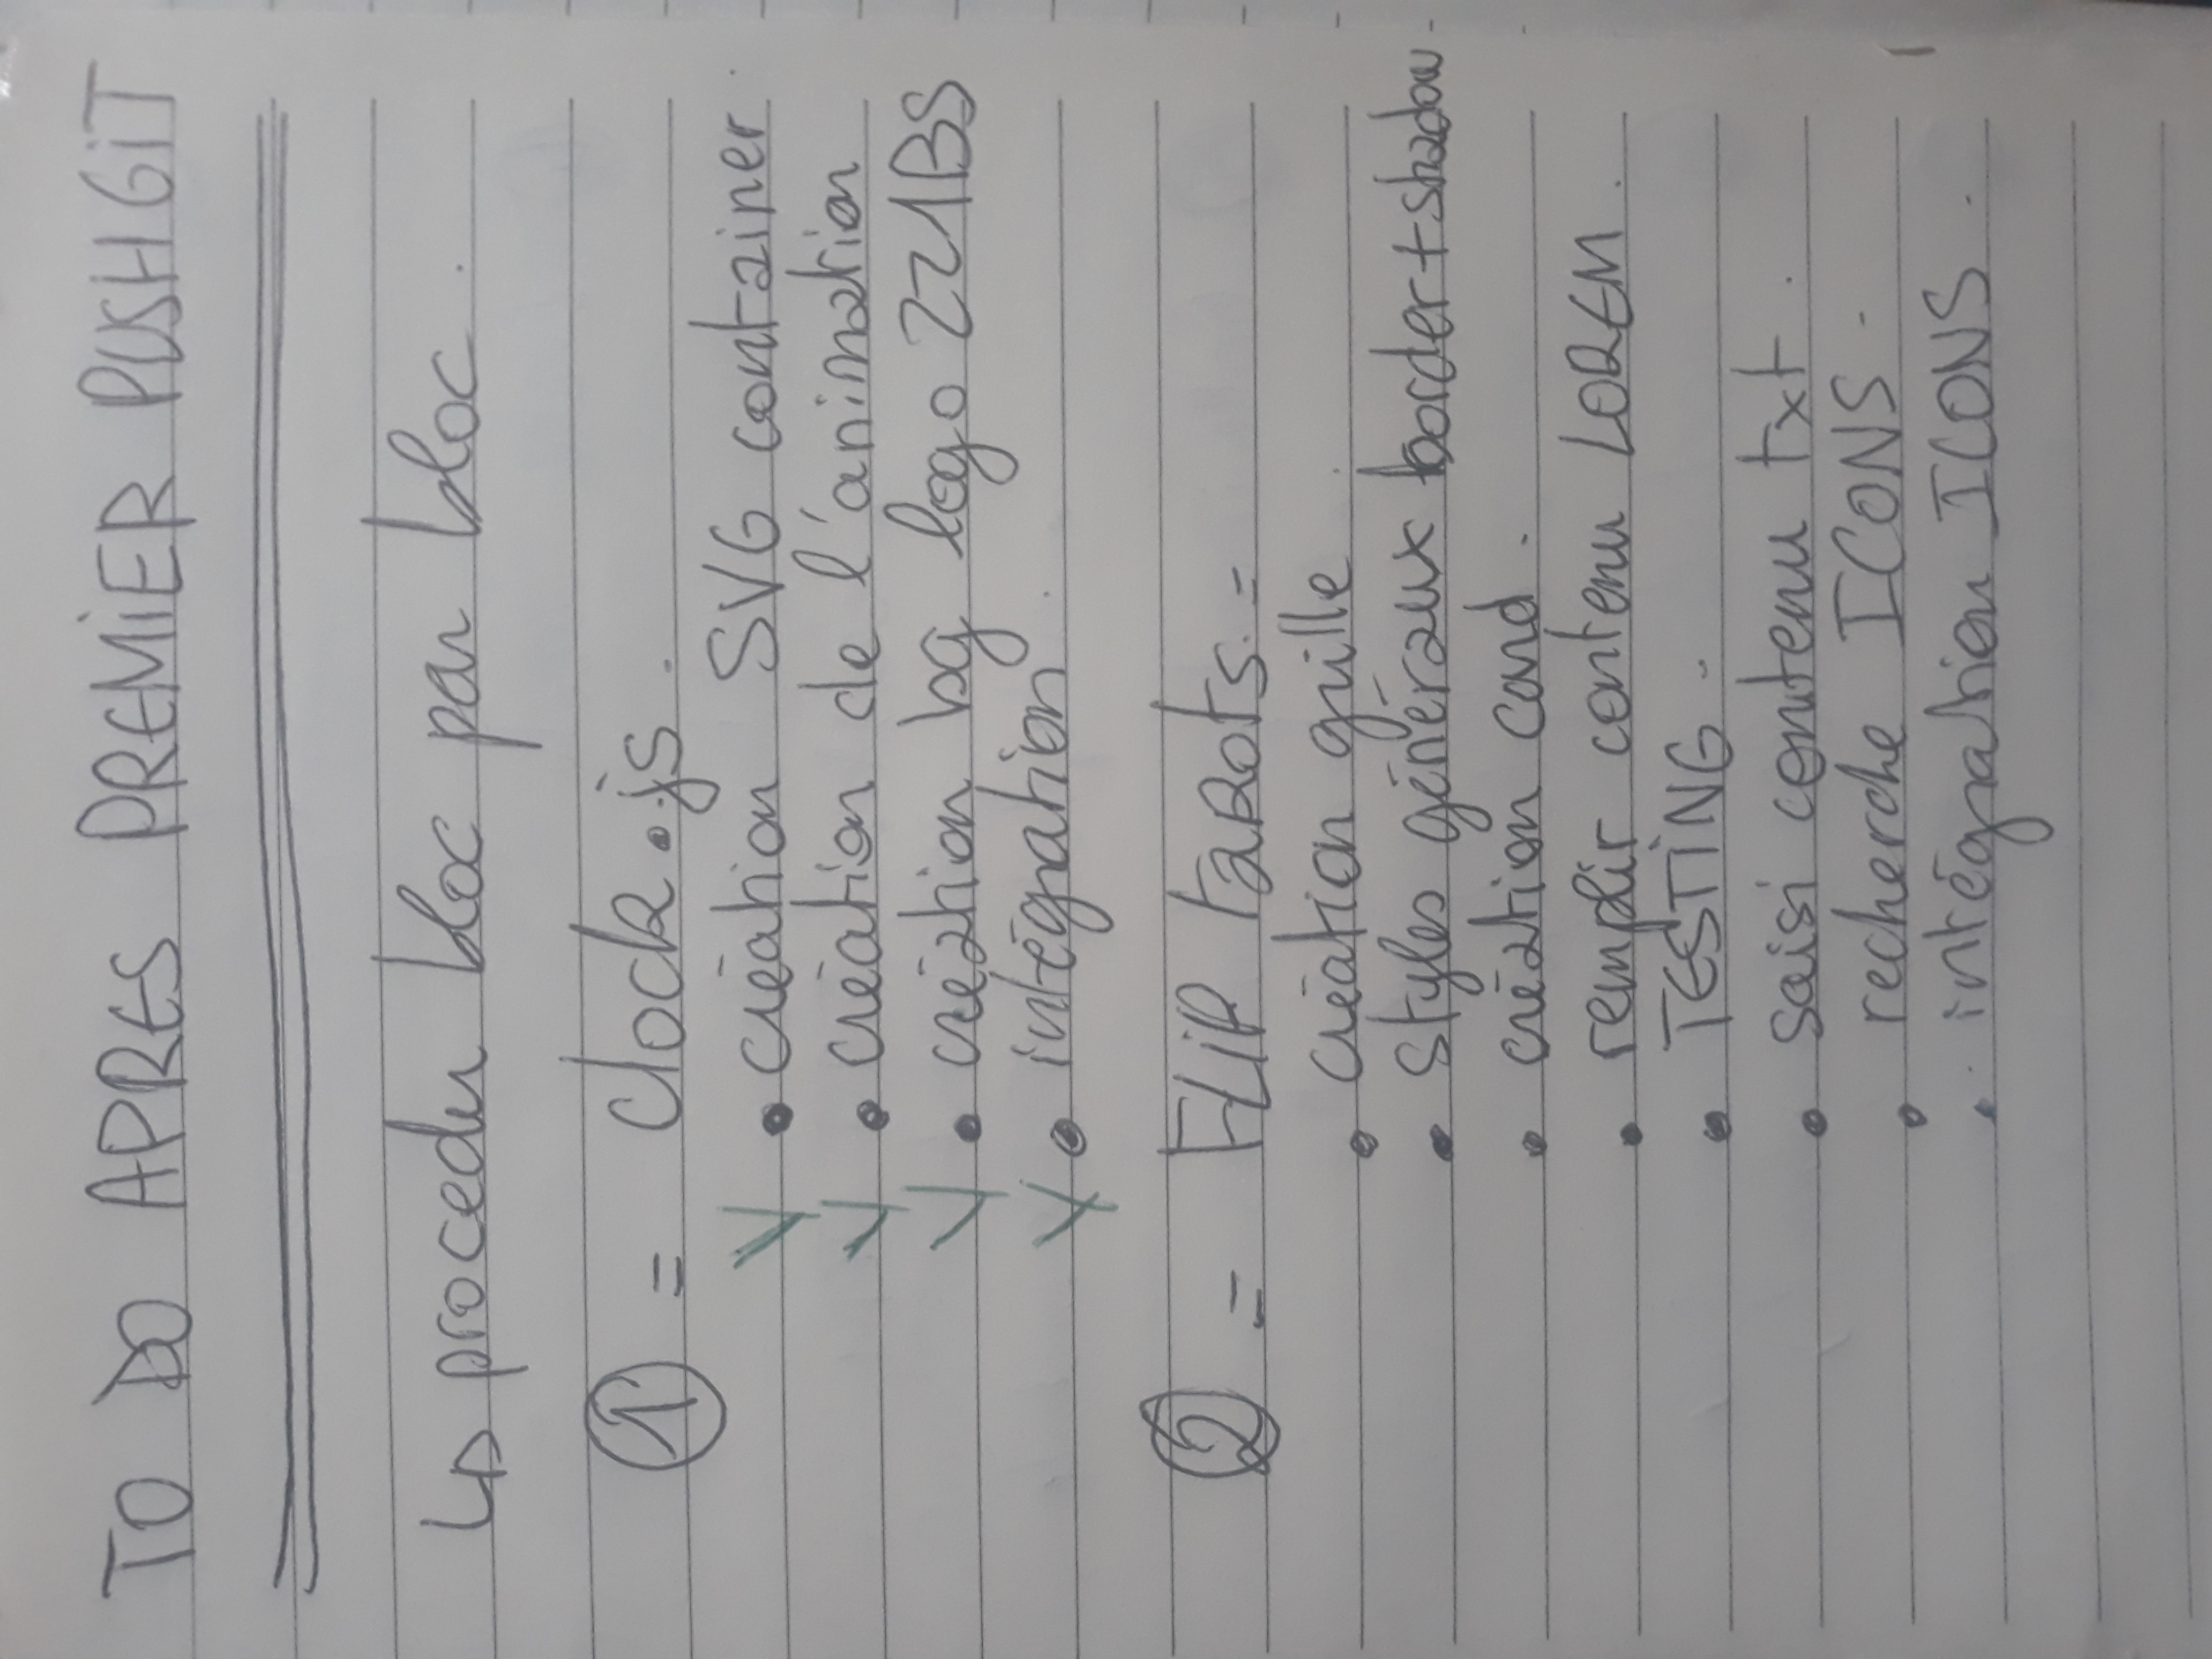 TO DO APRES PREMIER PUSH GIT
↳ proceder bloc par bloc.
① = Clock.js.
V • création SVG container.
V • création de l'animation
V • création bg logo 221BS
V • intégration.
② = FLIP taRots. =
• création grille.
• styles généraux border + shadow.
• création card.
• remplir contenu LOREM.
• TESTING.
• saisi contenu txt.
• recherche ICONS.
• intégration ICONS.